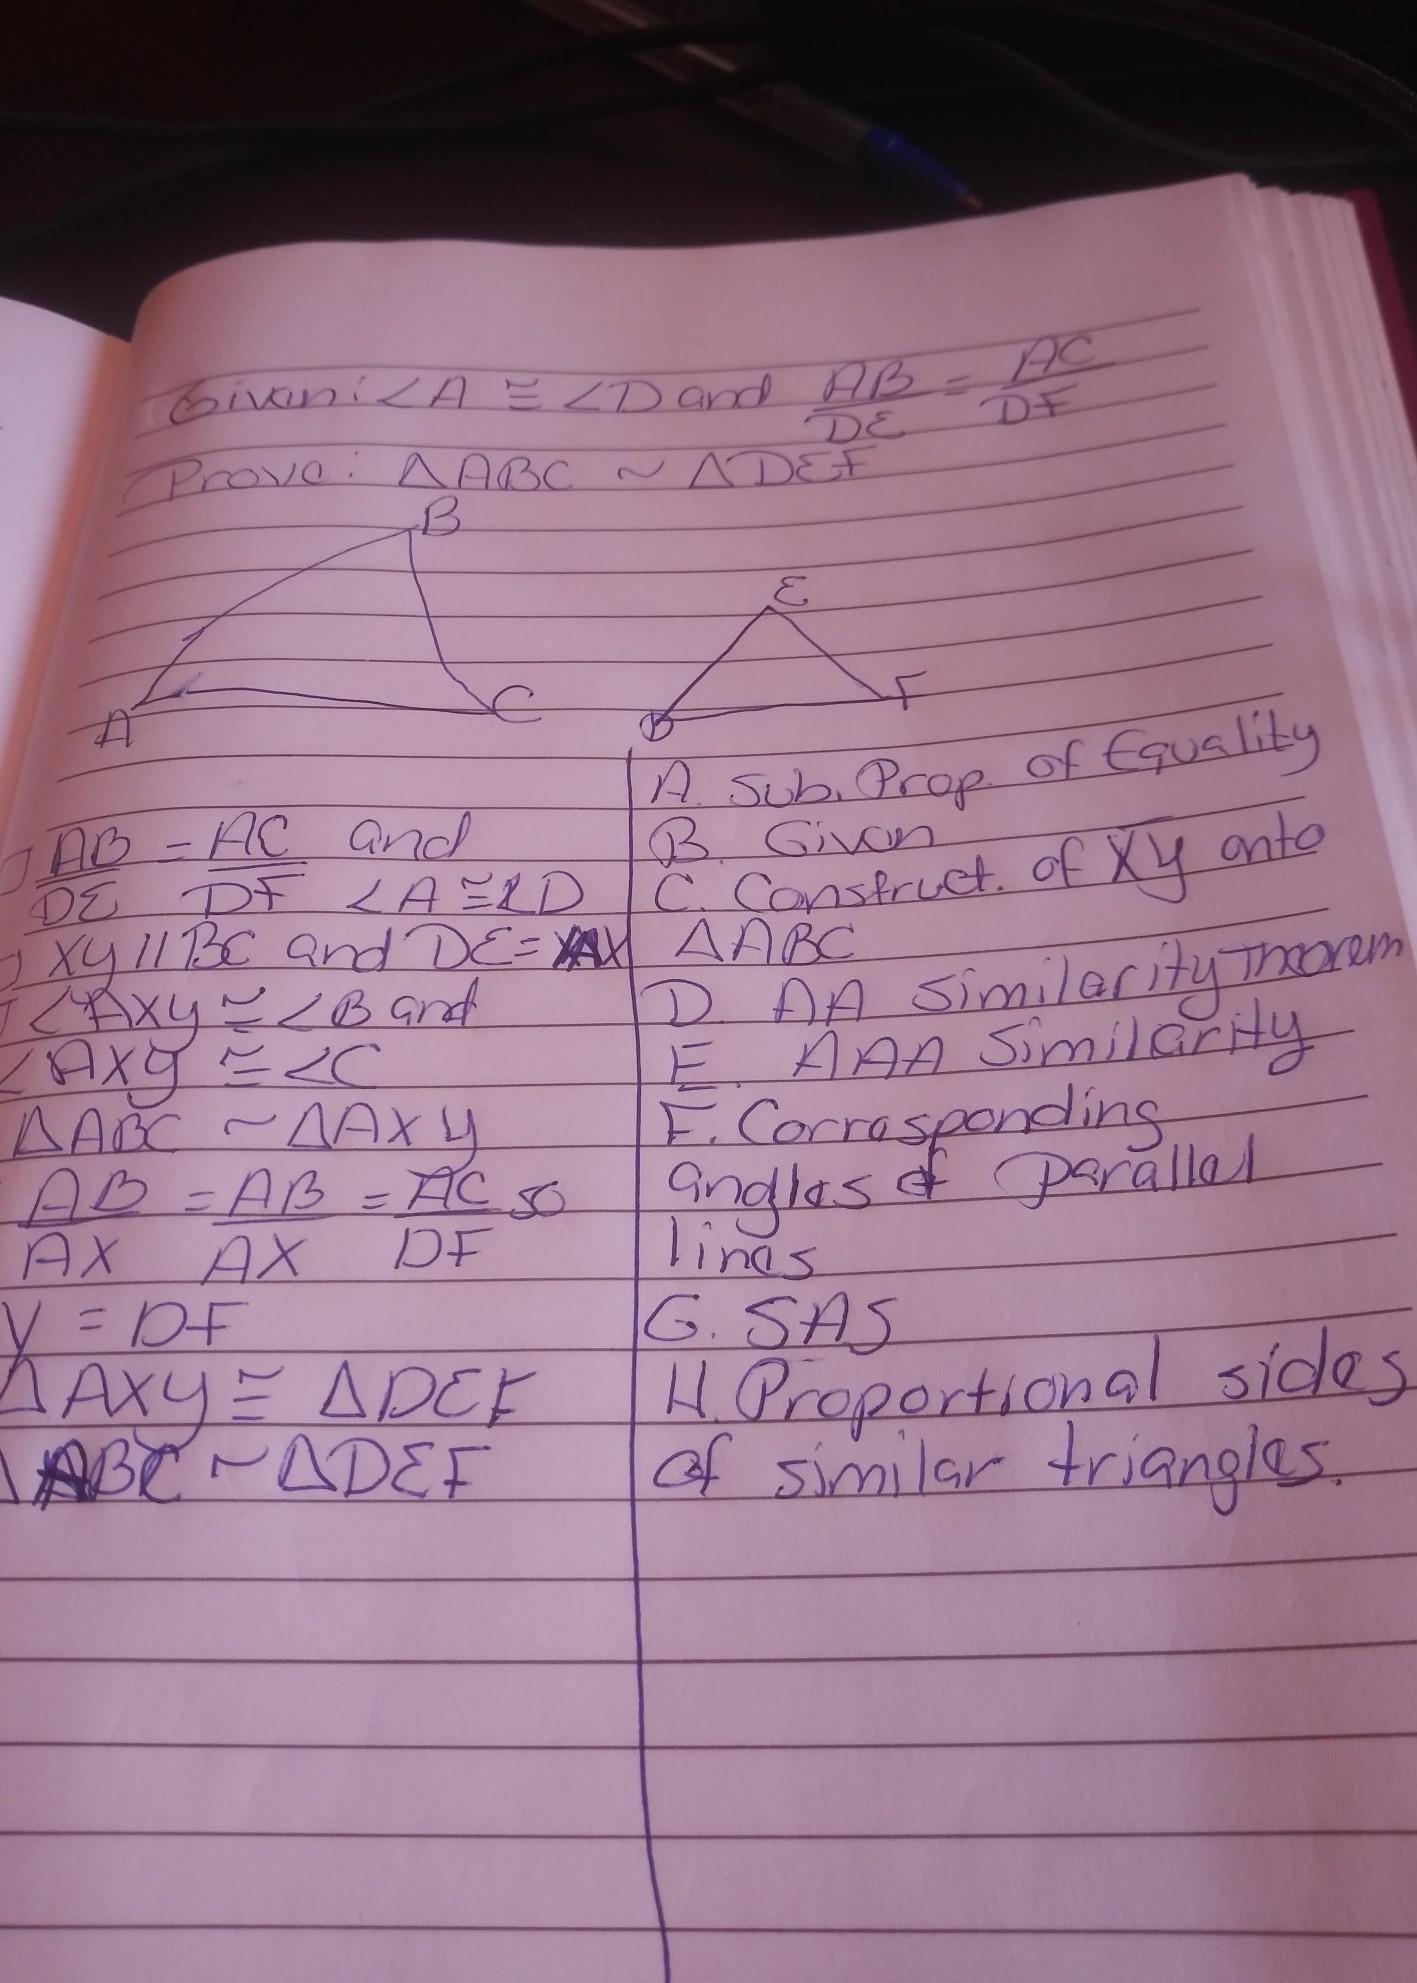 Given: ∠A ≅ ∠D and AB/DE = AC/DF
Prove: △ABC ~ △DEF
B
E
A
C
D
F
AB/DE = AC/DF and
∠A ≅ ∠D
XY // BC and DE = AX
∠AXY ≅ ∠B and
∠AXY ≅ ∠C
△ABC ~ △AXY
AB/AX = AB/AX = AC/DF so
Y = DF
△AXY ≅ △DEF
△ABC ~ △DEF
A. Sub. Prop. of Equality
B. Given
C. Construct. of XY onto
△ABC
D. AA Similarity Theorem
E. AAA Similarity
F. Corresponding
angles of parallel
lines
G. SAS
H. Proportional sides
of similar triangles.